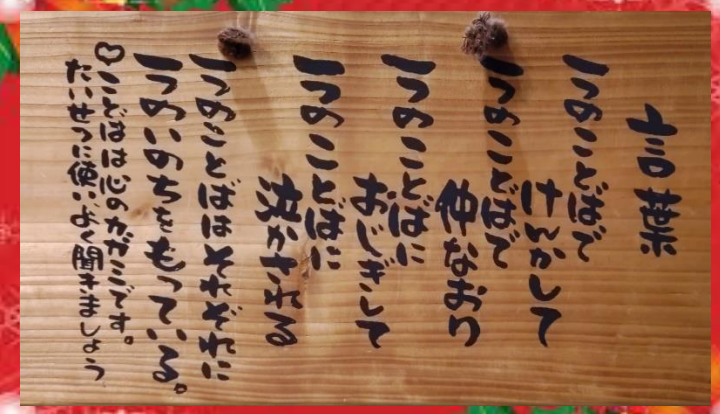 言葉
一つのことばで
けんかして
一つのことばで
仲なおり
一つのことばに
おじぎして
一つのことばに
泣かされる
一つのことばはそれぞれに
一つのいのちをもっている。
♡ことばは心のカガミです。
たいせつに使い、よく聞きましょう